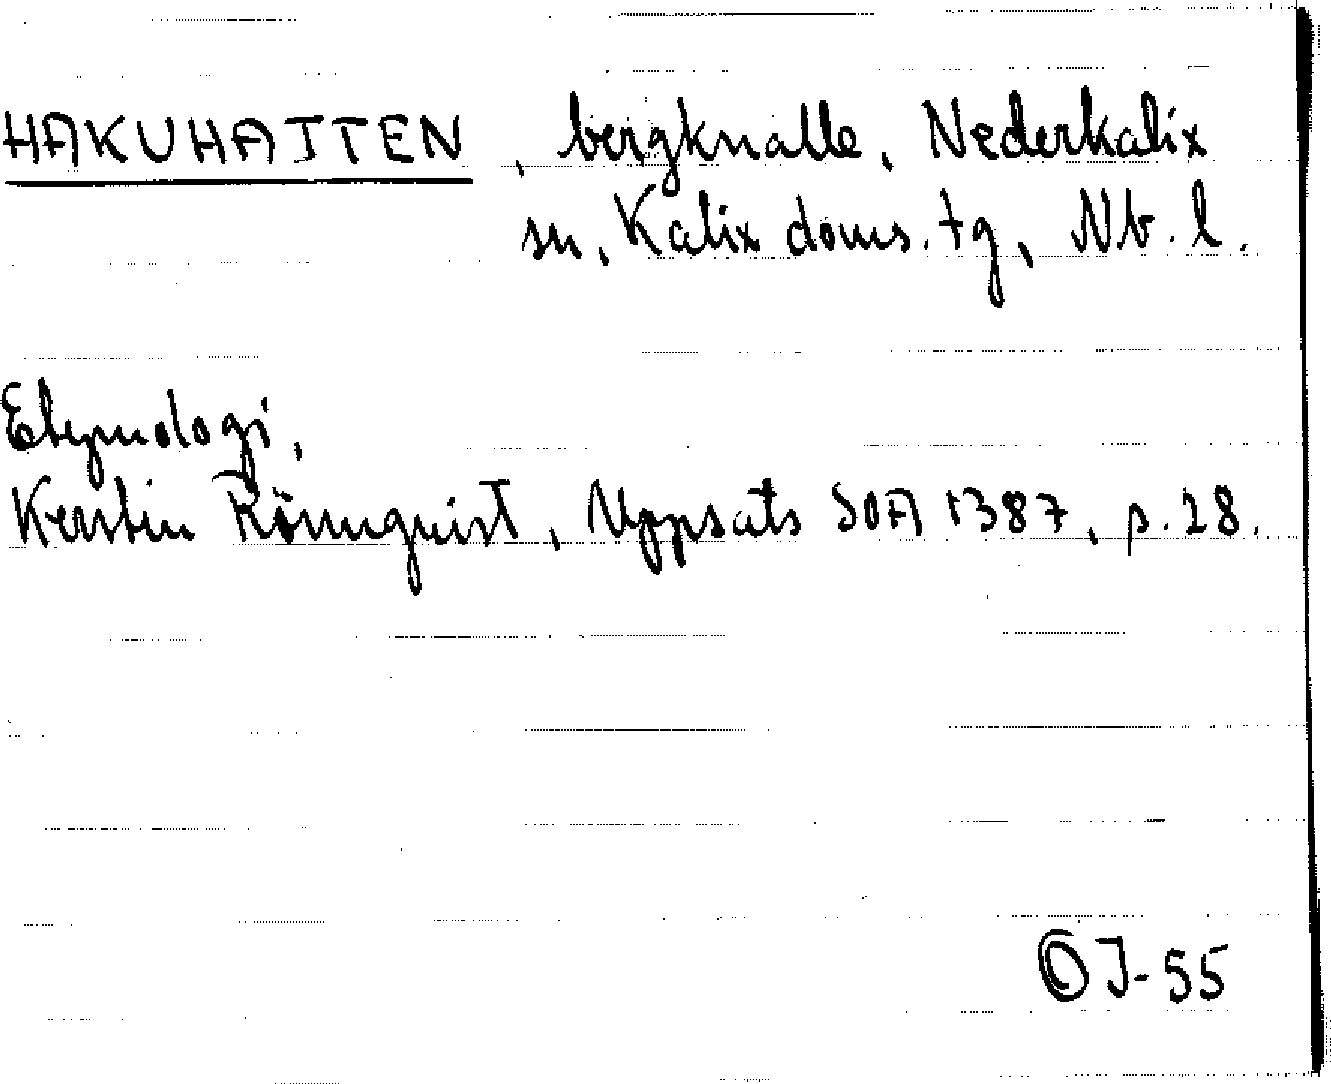 HAKUHATTEN, bergknalle, Nederkalix
sn, Kalix doms. tg, Nb. l.
Etymologi,
Kerstin Rönnquist, Uppsats SOA 1387, p. 28.
ÖJ-55